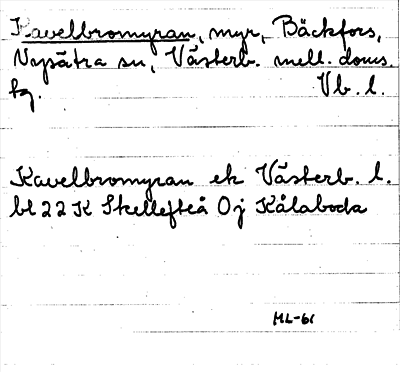 Kavelbromyran, myr, Bäckfors,
Nysätra sn, Västerb. mell. doms.
fg. Vb. l.
Kavelbromyran ek Västerb. l.
bl 22 K Skellefteå 0j Kålaboda
ML-61